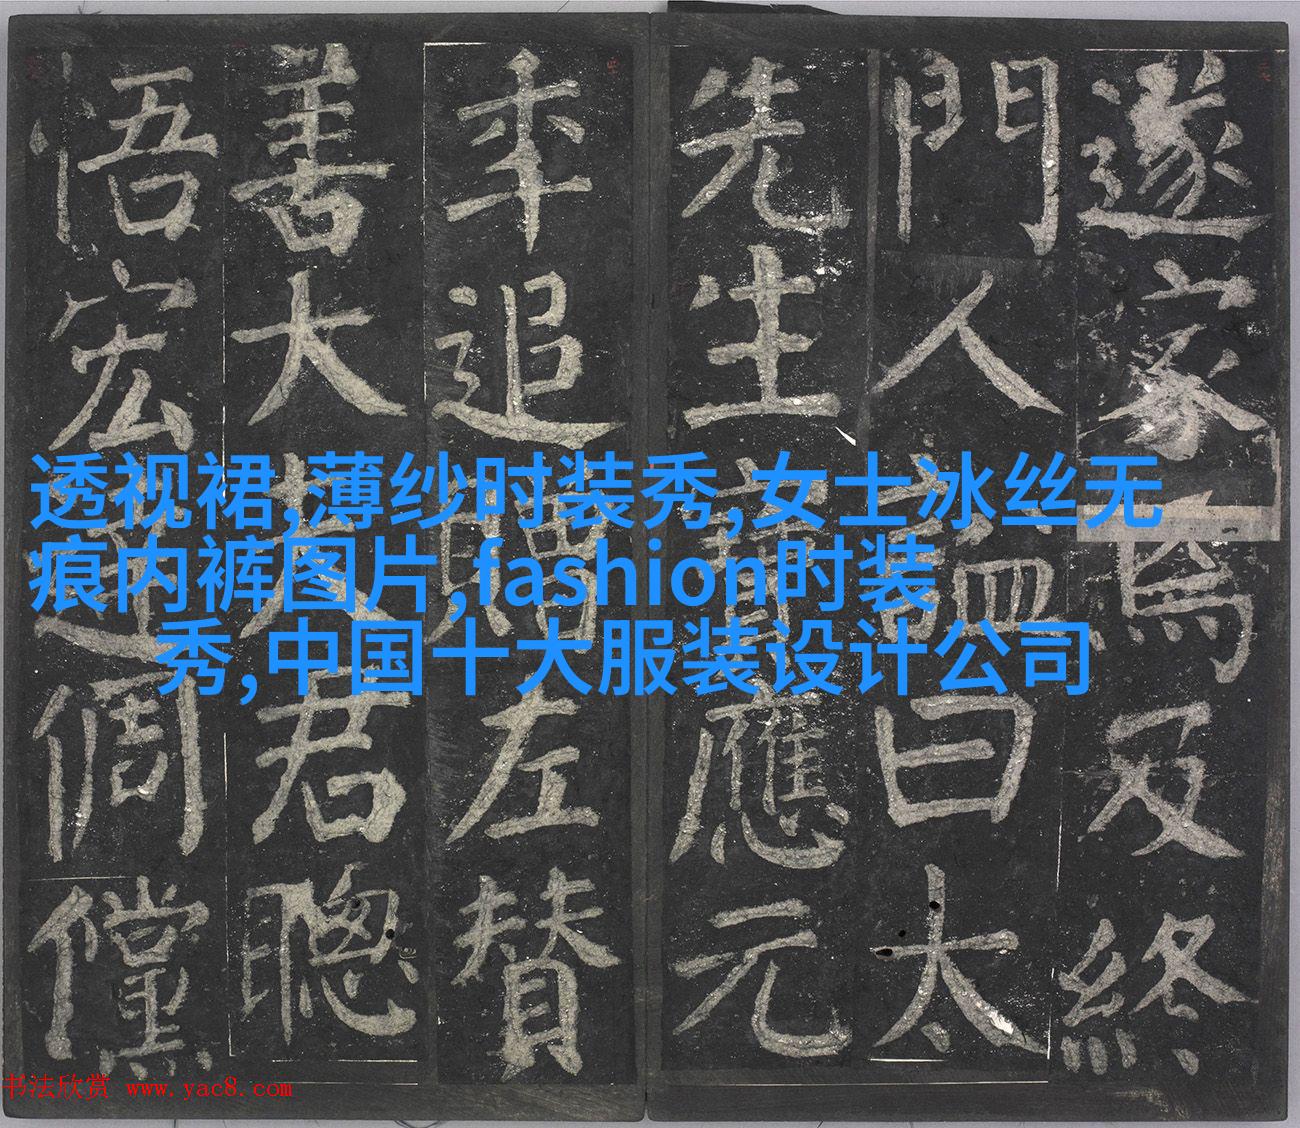 遂家焉及終
門人謚曰太
先生應元
年追贈左贊
善大夫君聰
悟宏倜儻
透视裙,薄纱时装秀,女士冰丝无
痕内裤图片,fashion时装
秀,中国十大服装设计公司
书法欣赏 www.yac8.com